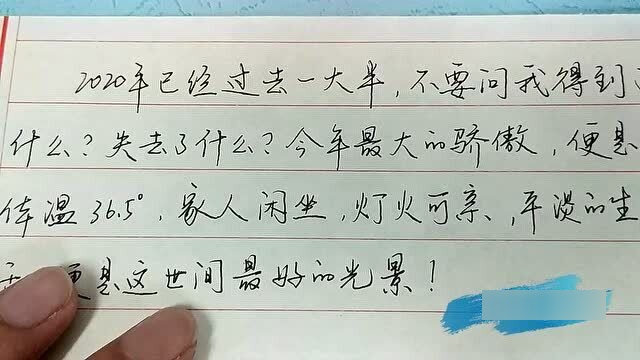 2020年已经过去一大半,不要问我得到
什么?失去了什么?今年最大的骄傲,便是
体温36.5°,家人闲坐,灯火可亲,平淡的生
便是这世间最好的光景!